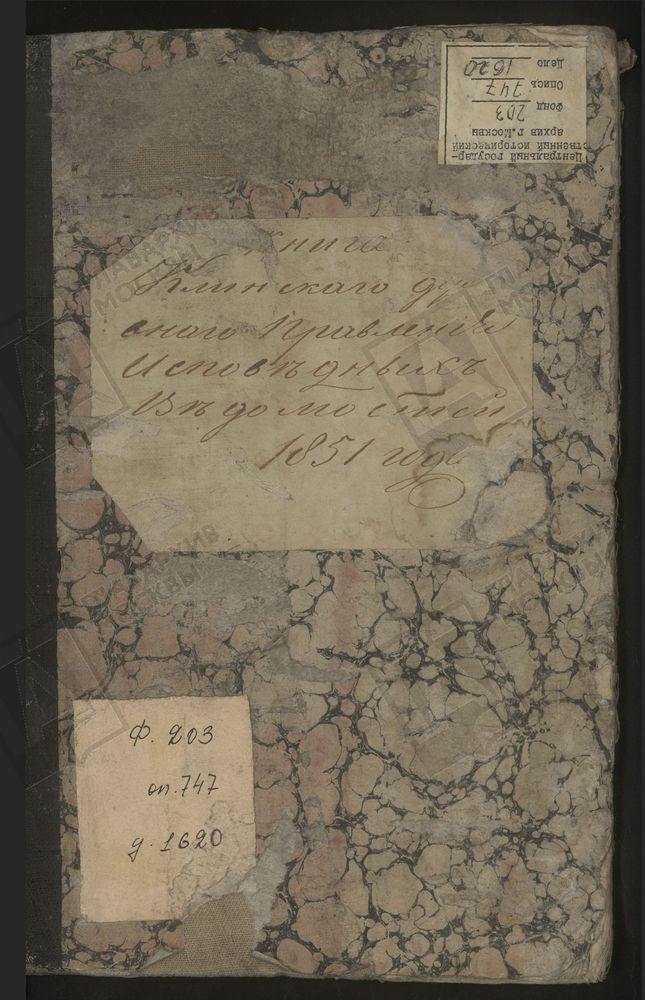 Центральный государ-
ственный исторический
архив г.Москвы
Фонд 203
Опись 747
Дело 1620
Книга
Клинскаго ду
внаго Правленія
Исповѣдныхъ
Вѣдомостей
1851 года
Ф. 203
оп. 747
д. 1620
ГЛАВАРХИВ
МОСКВЫ